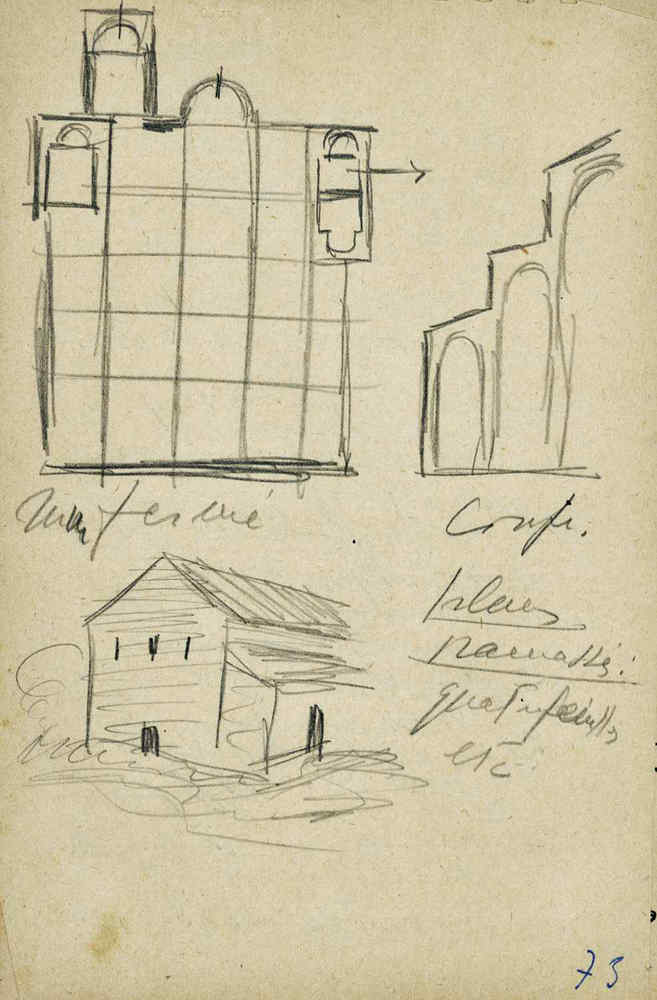 Mur fermé
Coupe.
plans
ramassés:
quatrefeuilles
etc.
73